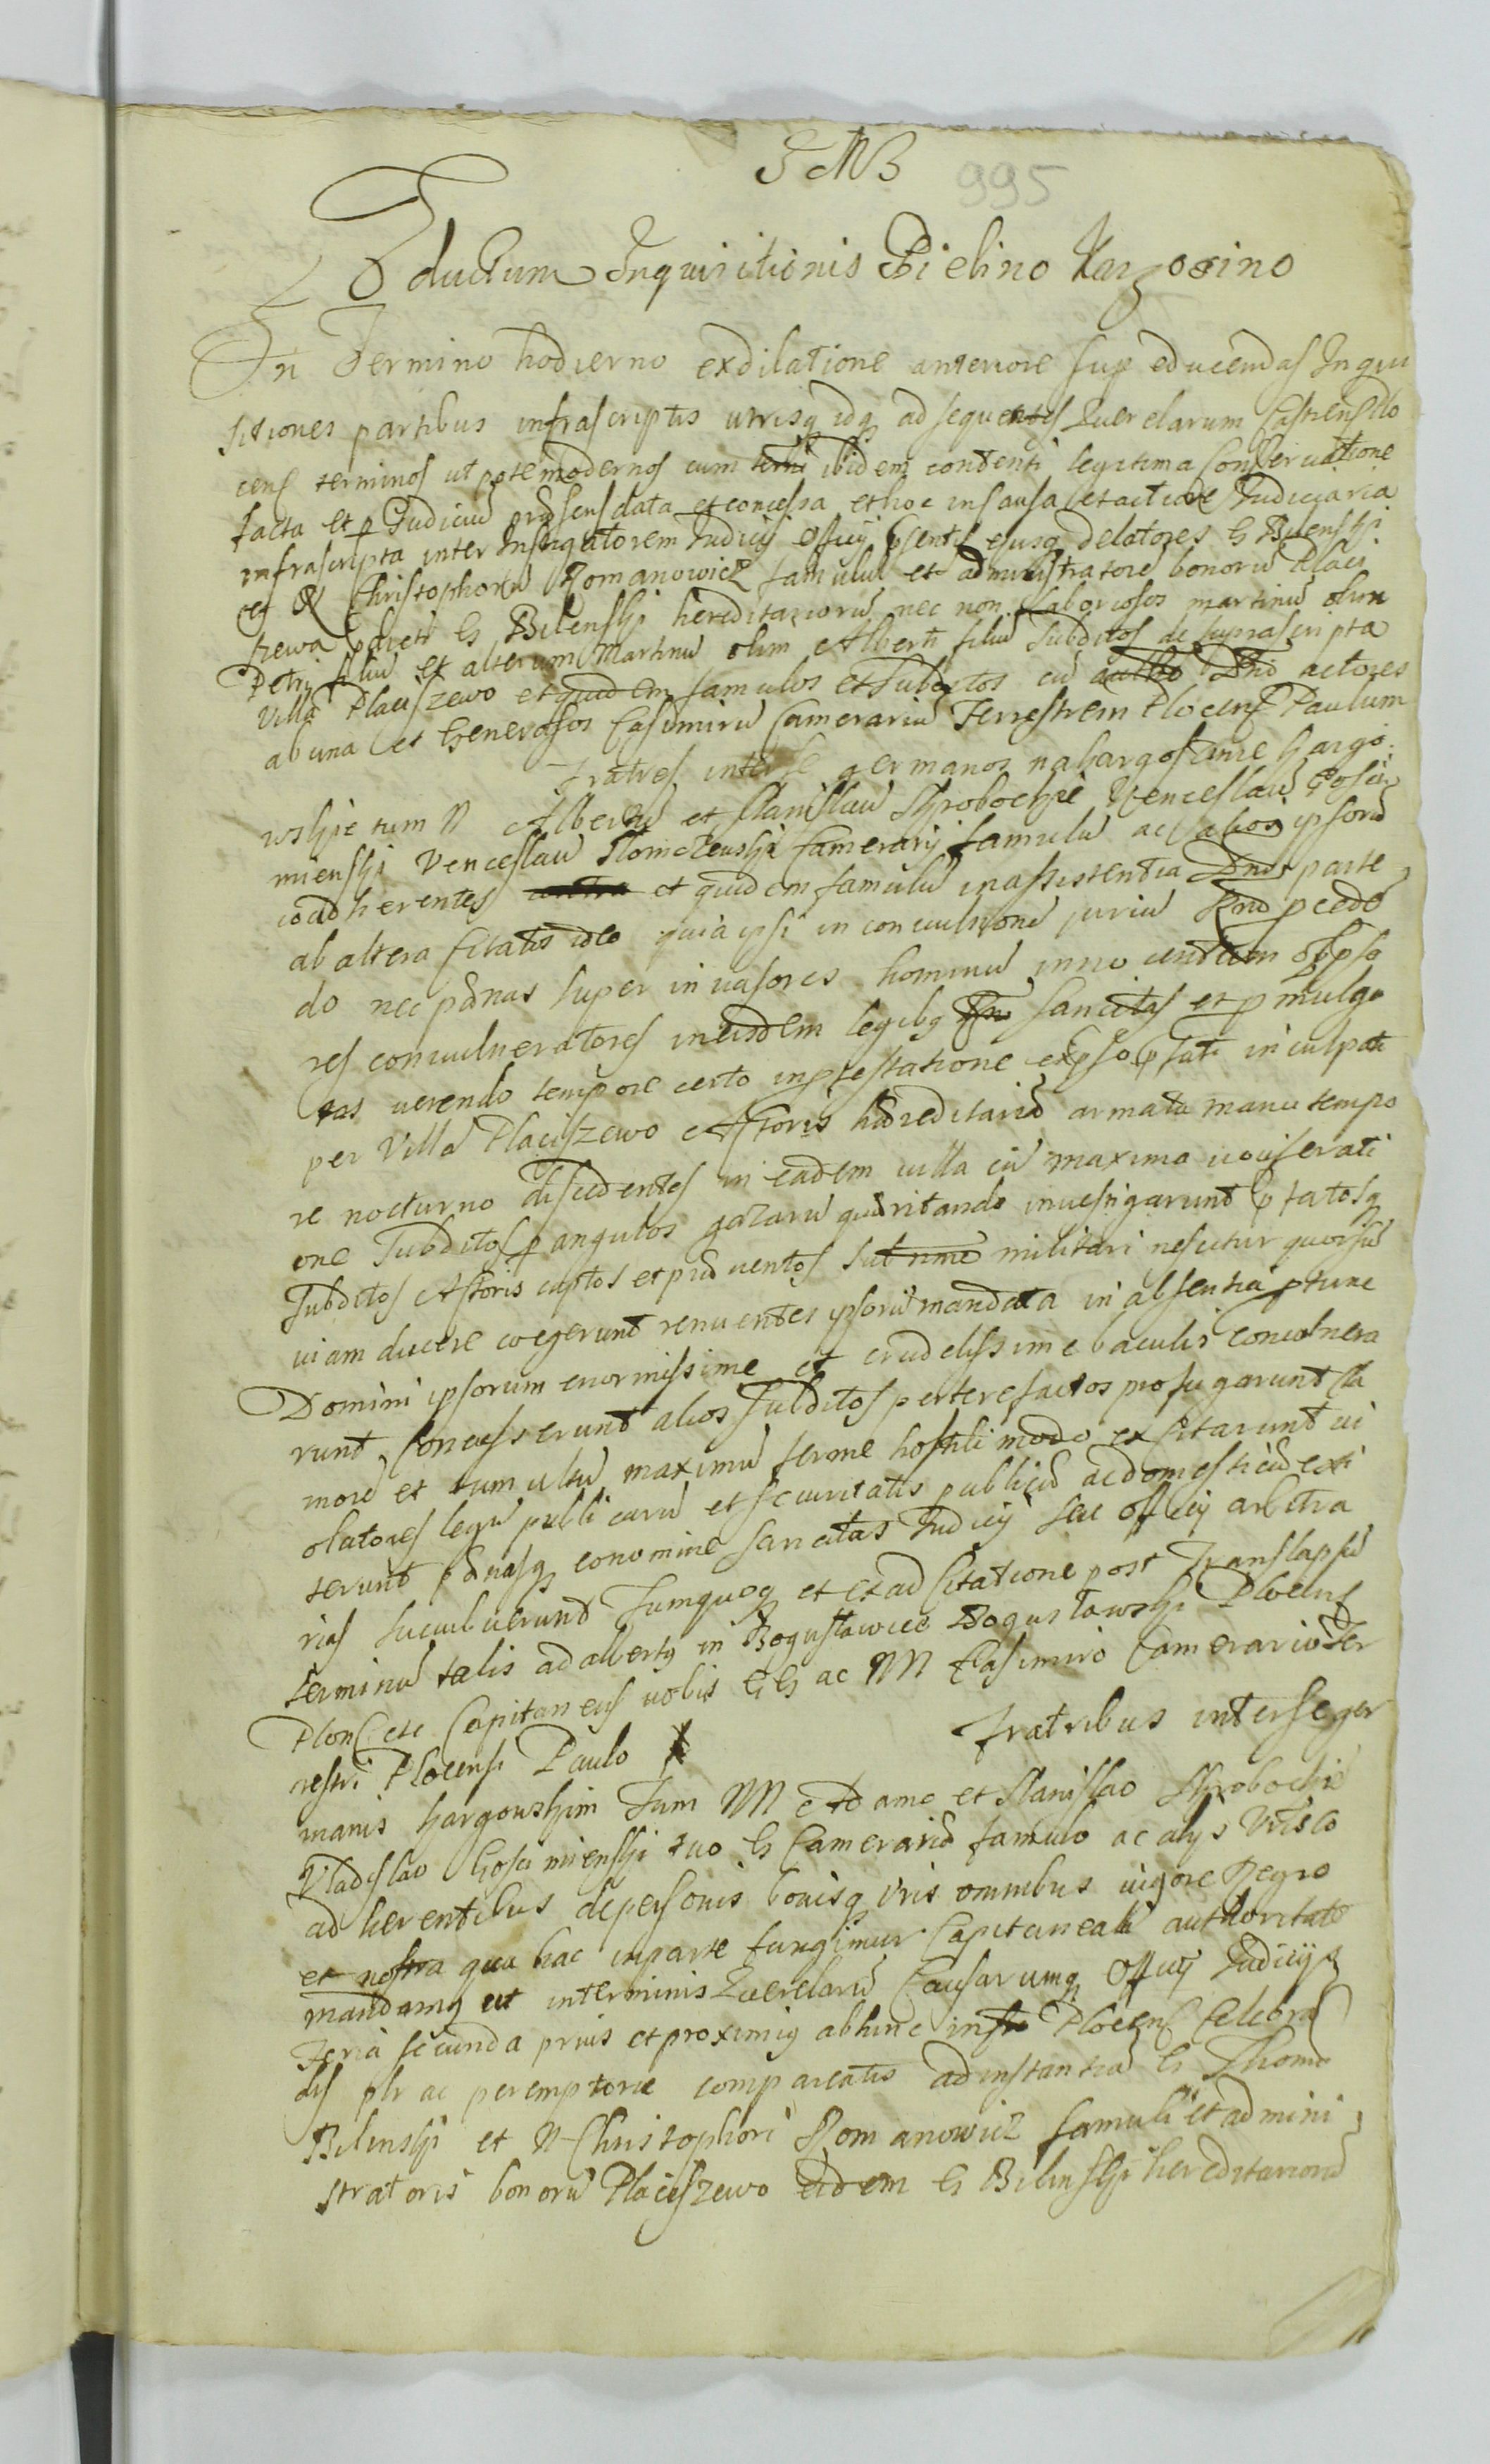 995
Eductum Inquisitionis Bielino Kargosino
In Termino hodierno ex dilatione anteriore sup educendas Inqui
sitiones partibus infrascriptis utrisq idq ad sequentes Querelarum Castrens Plo
cens terminos ut pote modernos cum ibidem contenti legitima conservatione
facta et p Judiciu data et concessa et hoc in causa et actione Judiciaria
infrascripta inter Instigatorem Judicij Officij ejusq delatores G Bilenski
et N Christophoru Romanowicz famulu et administratore bonoru Placi
szewa G Bilenski hereditarioru nec non Laboriosos martinu olim
Petri filiu et alterum Martinu olim Alberti filiu Subditos de suprascripta
Villa Placiszewo et quidem famulos et Subditos cu actores
ab una et Generosos Casimiru Camerariu Terrestrem Plocens Paulum
Fratres inter se germanos na Kargoszinie Kargo
wskie tum N Albertu et Stanislau Skrobockie Venceslau Gosci
mienski Venceslau Camerarij famulu ac alios ipsoru
coadherentes et quidem famulu in assistentia Dnor parte
ab altera citatis ideo quia ipsi in convulsione juriu pcede
do nec pænas super invasores hominu innocentium
res convulneratores in eisdem legibq sancitas et pmulga
tas verendo tempore certo inculpati
per Villa Placiszewo Actoris hæreditaria armata manu tempo
re nocturno discedentes in eadem villa cu maxima vociferati
one Subditos p angulos quæritando investigarunt
Subditos Actoris captos et militari nescitur quorsu
viam ducere coegerunt renuentes ipsoru mandata in absentia ptunc
Domini ipsorum enormissime et crudelissime baculis convulnera
runt Concusserunt alios Subditos perterefactos profugarunt Cla
more et tumultu maximu ferme hostili modo excitarunt vi
olatores legu publicaru et securitatis publicæ ac domesticæ exti
terunt pænasq eo nomine sancitas Judicij seu Officij arbitra
rias succubuerunt Tumquoq et ex ad Citatione post Translapsu
terminu talis Adalbertq in Bogusławice Bogusławski Plocens
Plons etc Capitaneus vobis GG ac NN Casimiro Camerario Ter
restri Plocensi Paulo
Fratribus inter se ger
manis Kargowskim Tum NN Adamo et Stanislao Skrobockie
Vladislao Goscimienski tuo G Camerarie famulo ac alijs Vris co
adherentibus de personis bonisq Vris omnibus vigore Regio
et nostra qua hac in parte fungimur Capitaneali authoritate
mandamq ut in terminis Querelaru Causarumq Officij Judicijq
Feria secunda prius et proximiq abhinc Plocens Celebra
dis plr ac peremptorie compareatis ad instantia G Thoma
Bilenski et N Christophori Romanowicz famuli et admini
stratoris bonoru Placiszewo eidem G Bilinski hereditarioru